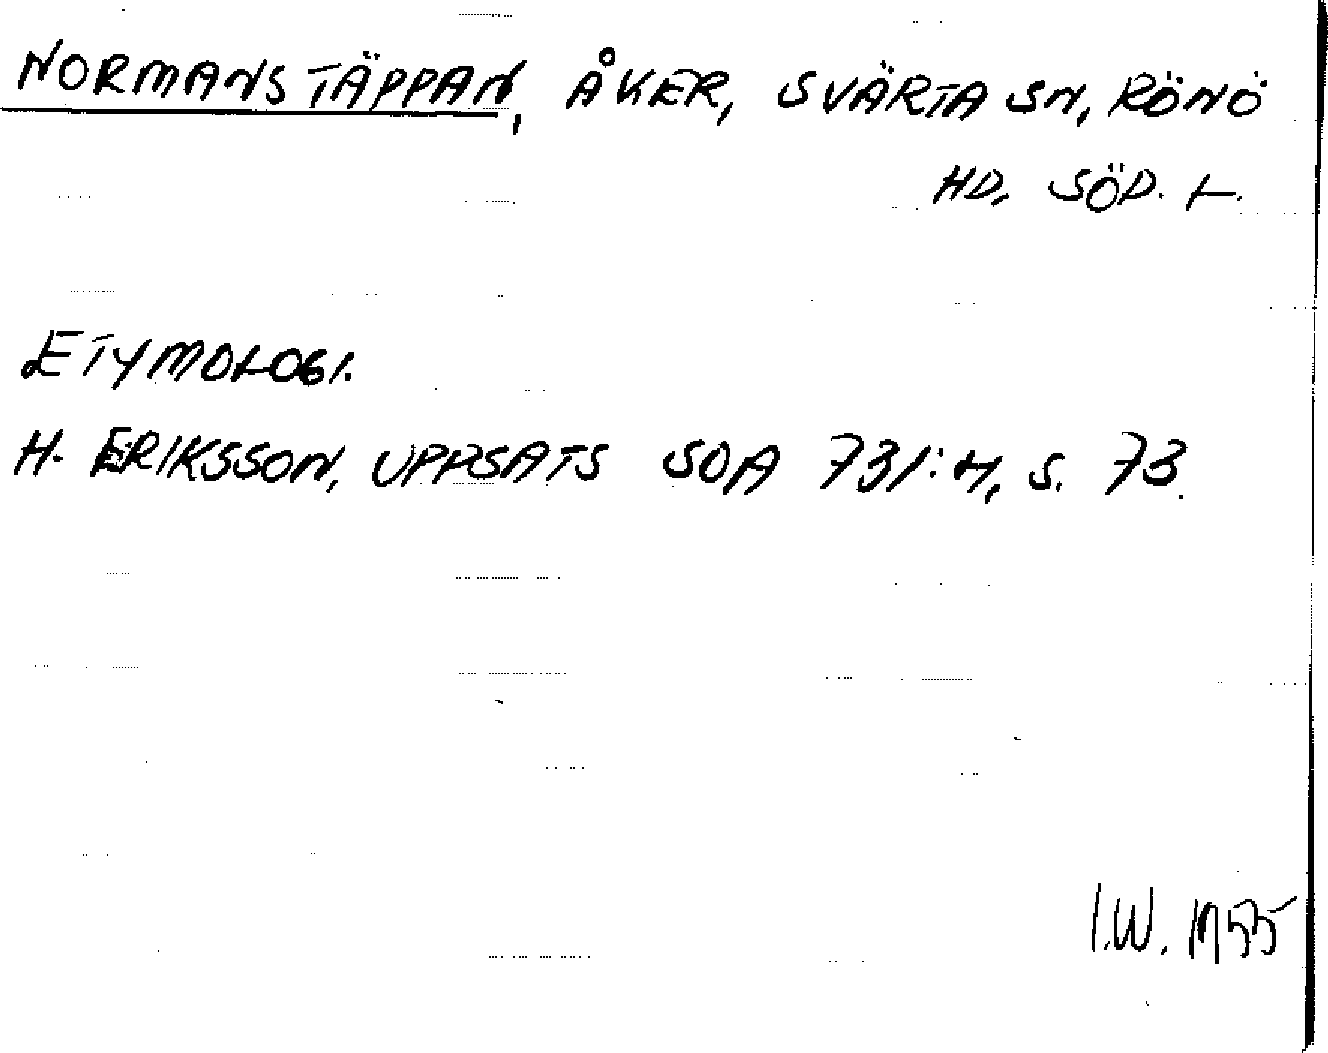 NORMANSTÄPPAN, ÅKER, SVÄRTA SN, RÖNÖ
HD, SÖD. L.
ETYMOLOGI.
H. ERIKSSON, UPPSATS SOA 731:4, S. 73.
I.W. 1955